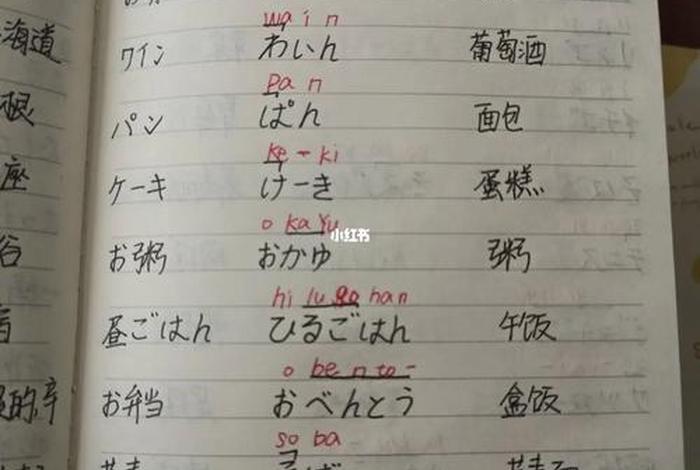 wa i n
海道 ワイン わいん 葡萄酒
Pa n
パン ぱん 面包
ke - ki
座 ケーキ けーき 蛋糕
o ka Yu
小红书
谷 お粥 おかゆ 粥
hi lu go han
昼ごはん ひるごはん 午饭
o be n to -
的辛 お弁当 おべんとう 盒饭
so ba